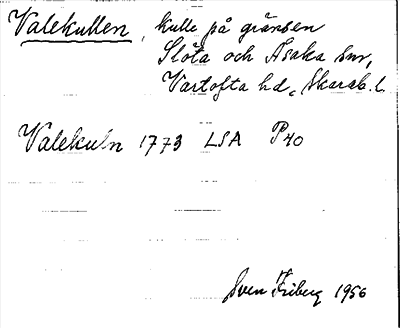 Valekullen, kulle på gränsen
Slöta och Åsaka snr,
Vartofta hd, Skarab. l.
Valeku'n 1773 LSA P40
Sven Friberg 1956